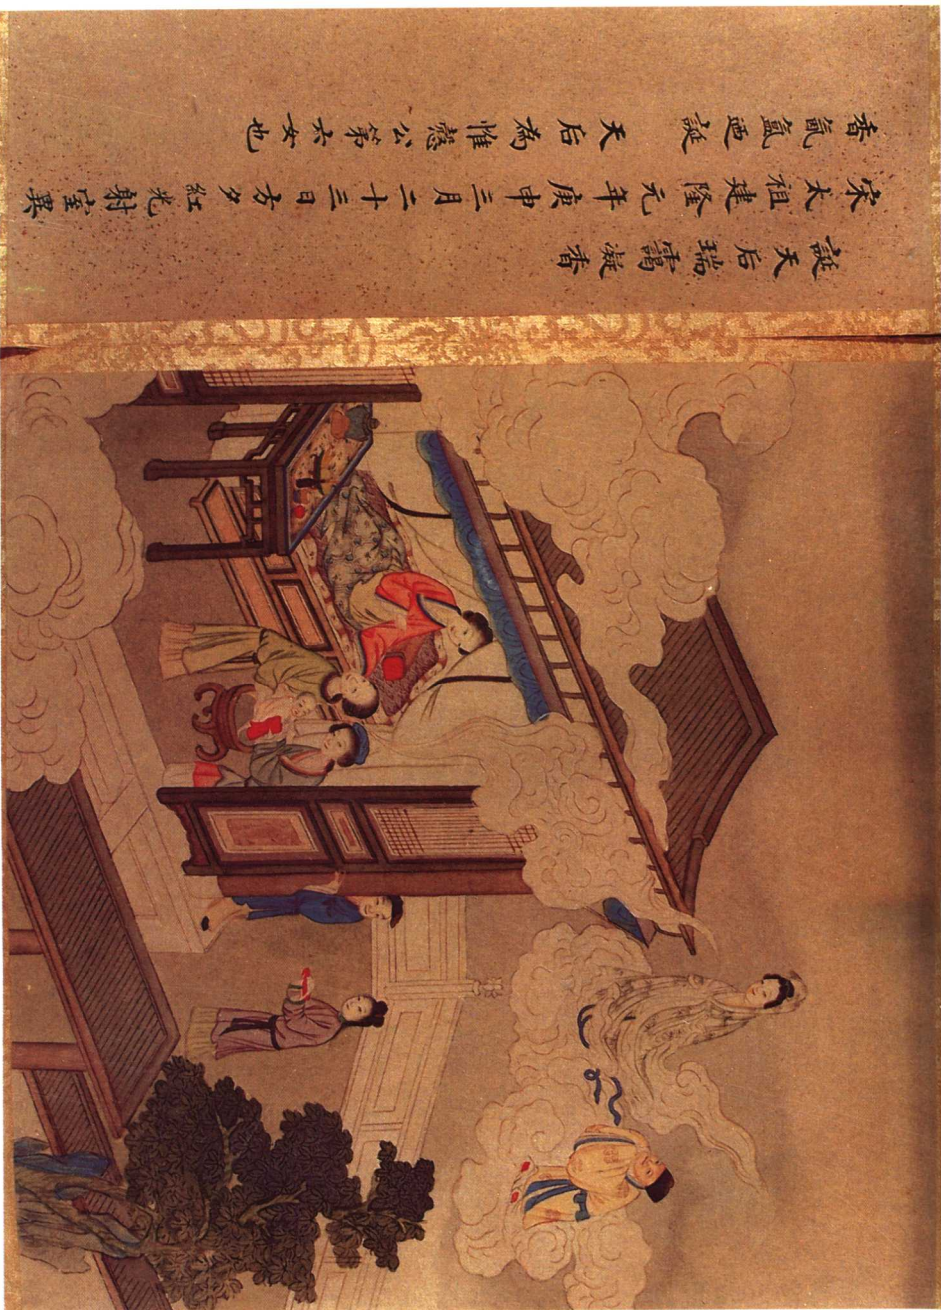 誕天后瑞靄凝香
宋太祖建隆元年庚申三月二十三日方夕紅光射室異
香氤氳迺誕 天后為惟愨公第六女也